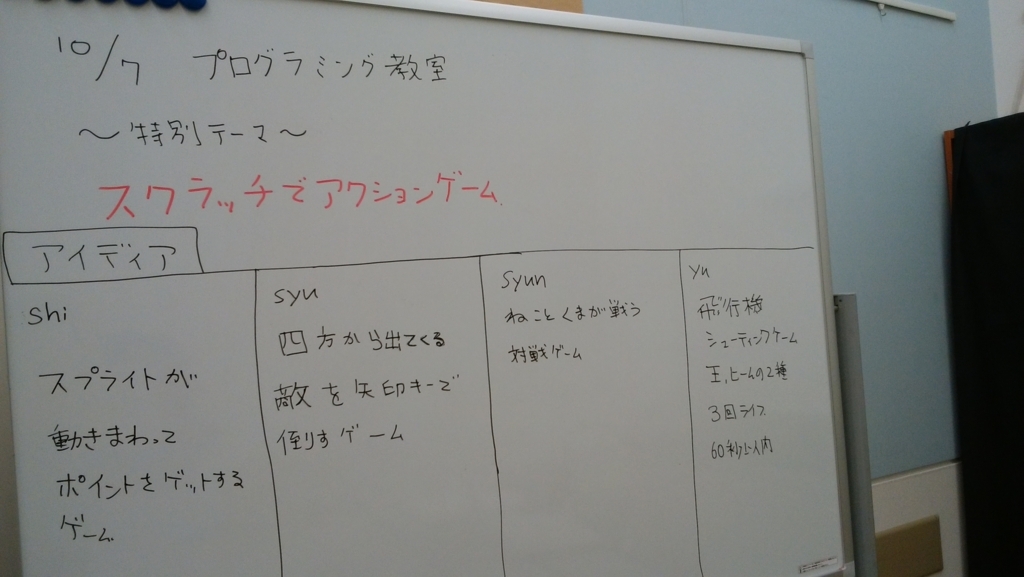 10/7 プログラミング教室
〜特別テーマ〜
スクラッチでアクションゲーム
アイディア
shi
スプライトが
動きまわって
ポイントをゲットする
ゲーム
syu
四方から出てくる
敵を矢印キーで
倒すゲーム
syun
ねことくまが戦う
対戦ゲーム
yu
飛行機
シューティングゲーム
玉,ビームの2種
3回ライフ
60秒以内